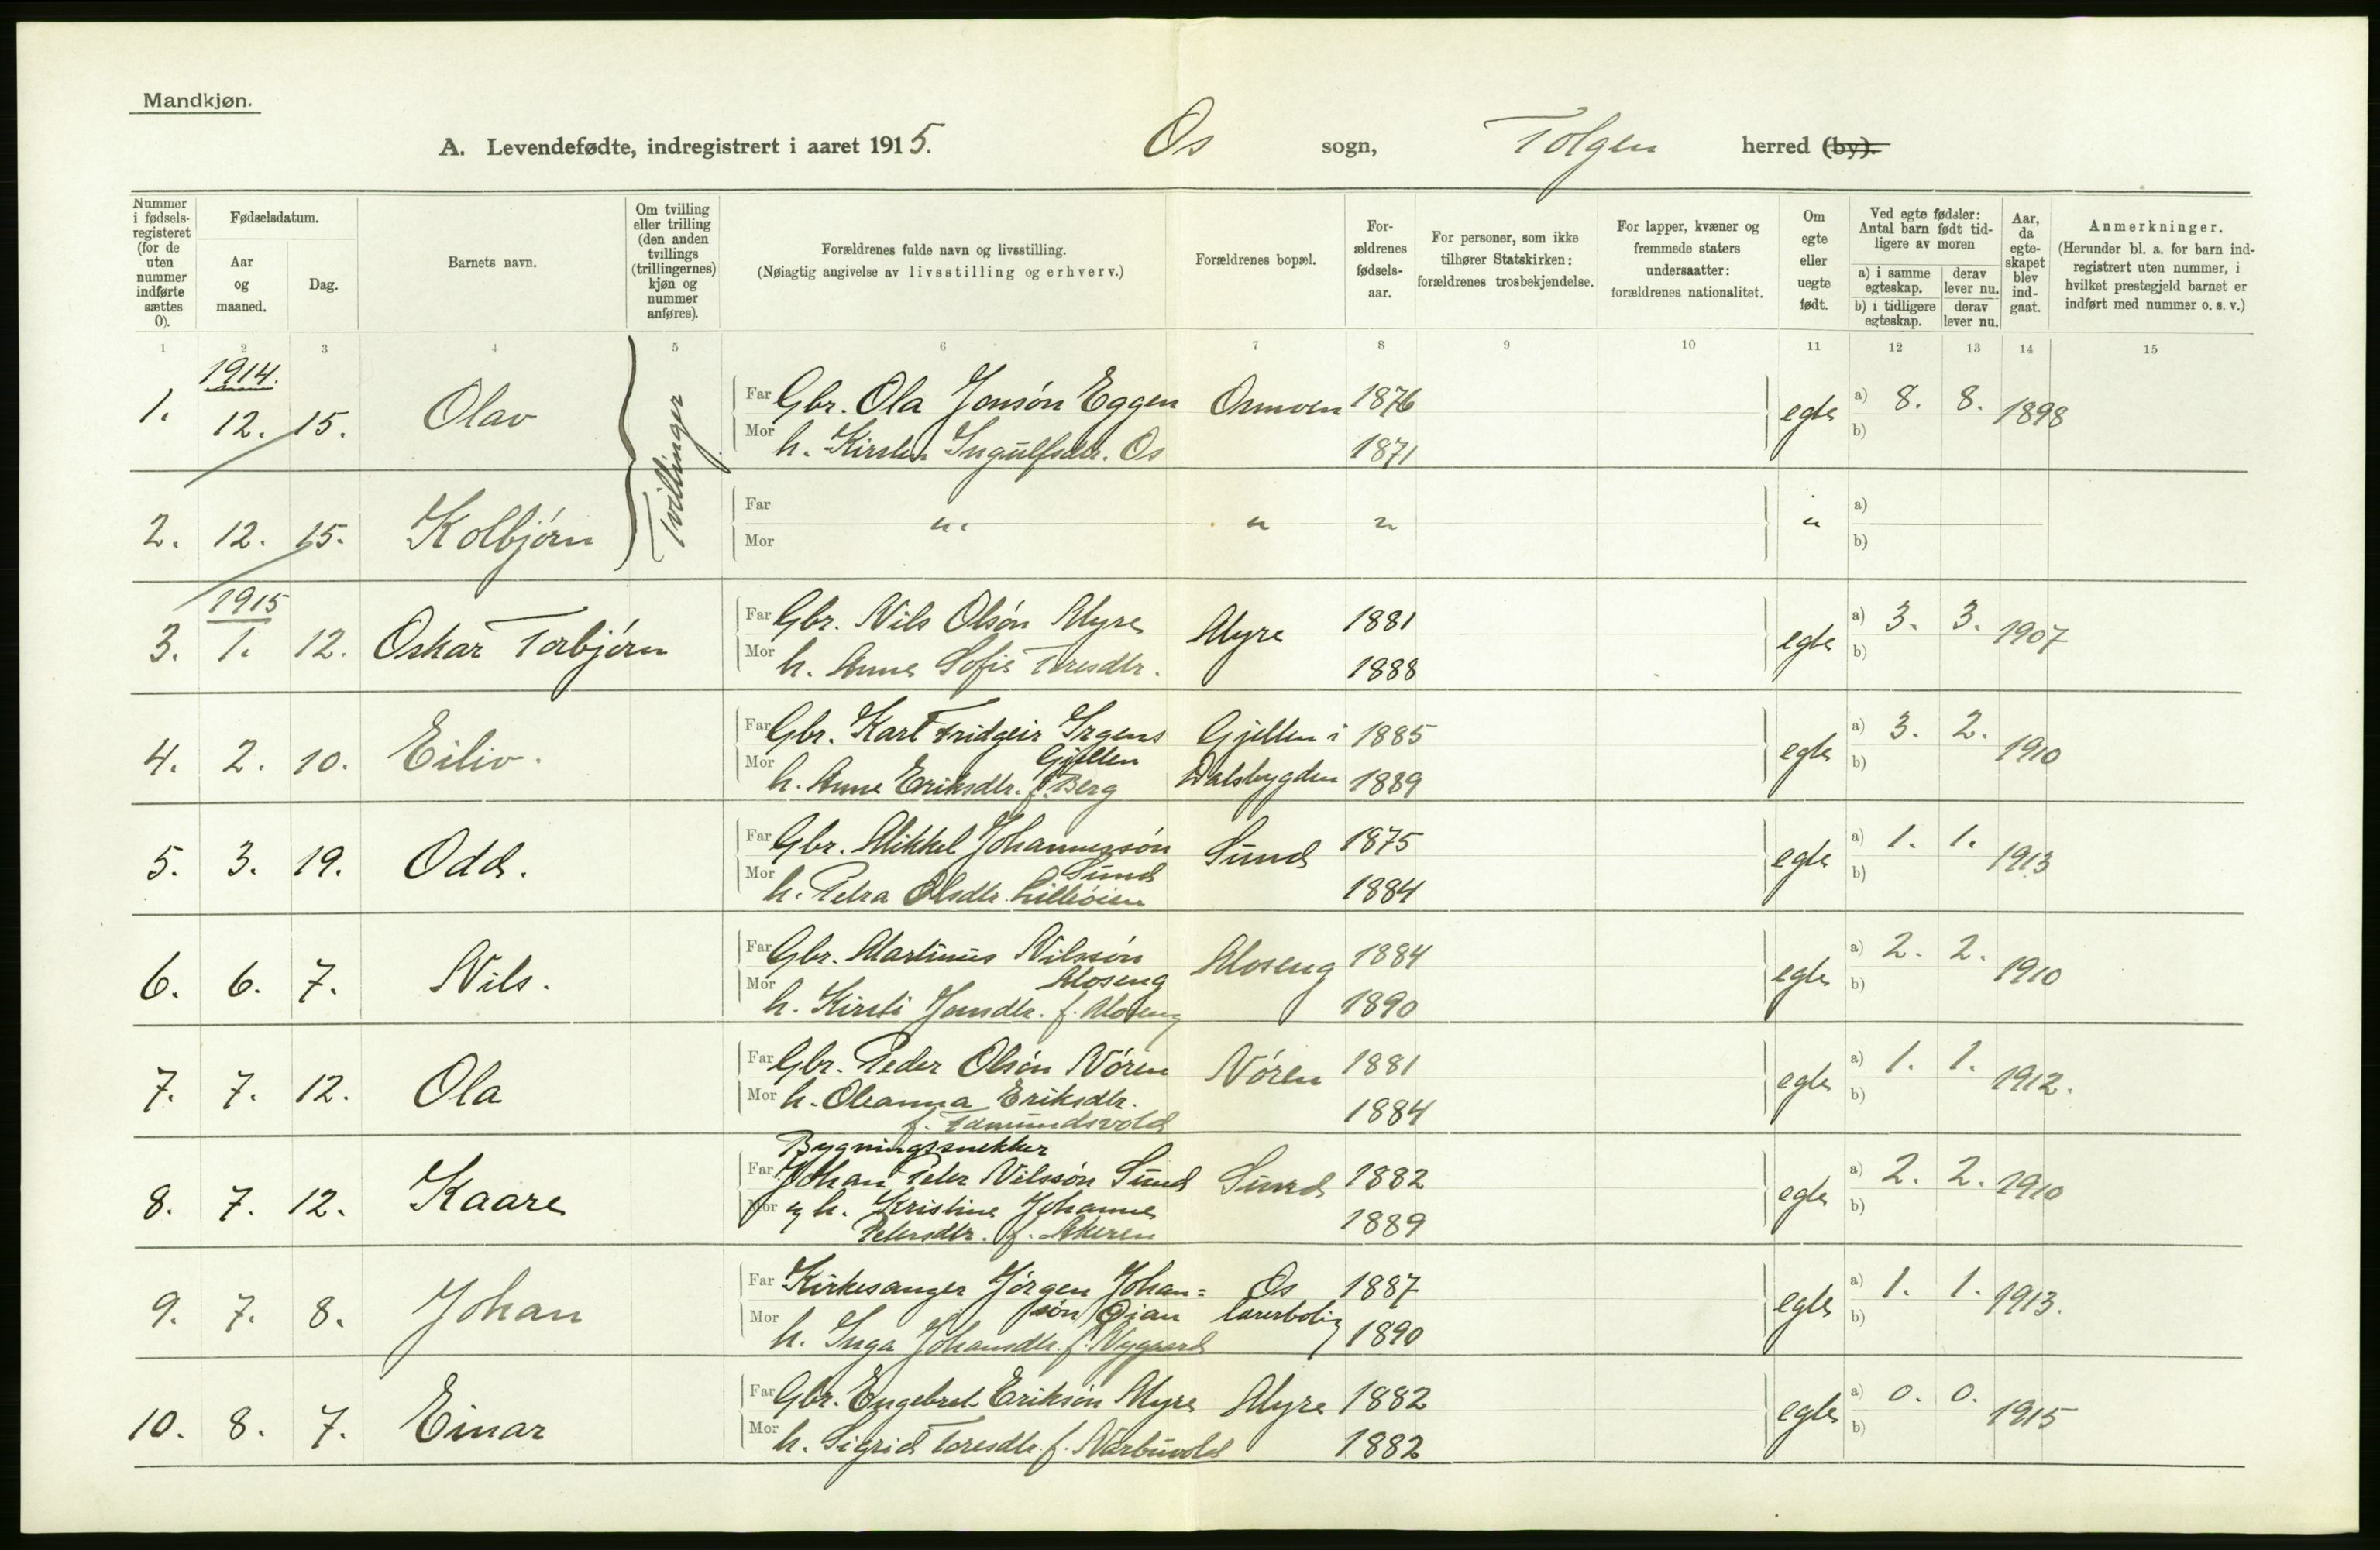 Mandkjøn.
A. Levendefødte, indregistrert i aaret 1915. Os sogn, Tolgen herred (by).
Nummer i fødsels-registeret (for de uten nummer indførte sættes 0).
Fødselsdatum.
Aar og maaned.
Dag.
Barnets navn.
Om tvilling eller trilling (den anden tvillings (trillingernes) kjøn og nummer anføres).
Forældrenes fulde navn og livsstilling.
(Nøiagtig angivelse av livsstilling og erhverv.)
Forældrenes bopæl.
For-ældrenes fødsels-aar.
For personer, som ikke tilhører Statskirken: forældrenes trosbekjendelse.
For lapper, kvæner og fremmede staters undersaatter: forældrenes nationalitet.
Om egte eller uegte født.
Ved egte fødsler: Antal barn født tid-ligere av moren
a) i samme egteskap. derav lever nu.
b) i tidligere egteskap. derav lever nu.
Aar, da egte-skapet blev ind-gaat.
Anmerkninger.
(Herunder bl. a. for barn ind-registrert uten nummer, i hvilket prestegjeld barnet er indført med nummer o. s. v.)
1 2 3 4 5 6 7 8 9 10 11 12 13 14 15
1914.
1. 12. 15. Olav Tvillinger Far Gbr. Ola Jonsón Eggen Osmoen 1876 egte a) 8. 8. 1898
Mor h. Kirsten Ingulfsdtr. Os 1871 b)
2. 12. 15. Kolbjórn Far Mor " " " " a) b)
1915
3. 1. 12. Oskar Torbjórn Far Gbr. Nils Olsón Myre Myre 1881 egte a) 3. 3. 1907
Mor h. Anne Sofie Toresdtr. 1888 b)
4. 2. 10. Eiliv. Far Gbr. Karl Fridgeir Irgens Gjelten i 1885 egte a) 3. 2. 1910
Gjelten
Mor h. Anne Eriksdtr. f. Berg Dalsbygden 1889 b)
5. 3. 19. Odd. Far Gbr. Mikkel Johannessón Sund 1875 egte a) 1. 1. 1913
Sund
Mor h. Petra Olsdtr. Lilleóien 1884 b)
6. 6. 7. Nils. Far Gbr. Martinus Nilssón Moseng 1884 egte a) 2. 2. 1910
Moseng
Mor h. Kirsti Jonsdtr. f. Moseng 1890 b)
7. 7. 12. Ola Far Gbr. Peder Olsón Nóren Nóren 1881 egte a) 1. 1. 1912.
Mor h. Oleanna Eriksdtr. 1884 b)
f. Estmundsvold
Bygningssnekker
8. 7. 12. Kaare Far Johan Peter Nilssón Sund Sund 1882 egte a) 2. 2. 1910
Mor og h. Kristine Johanne 1889 b)
Petersdtr. f. Akeren
9. 7. 8. Johan Far Kirkesanger Jórgen Johan= Os 1887 egte a) 1. 1. 1913.
són Óian lærerbolig
Mor h. Inga Johansdtr. f. Nygaard 1890 b)
10. 8. 7. Einar Far Gbr. Engebret Eriksón Myre Myre 1882 egte a) 0. 0. 1915
Mor h. Sigrid Toresdtr. f. Narbuvold 1882 b)